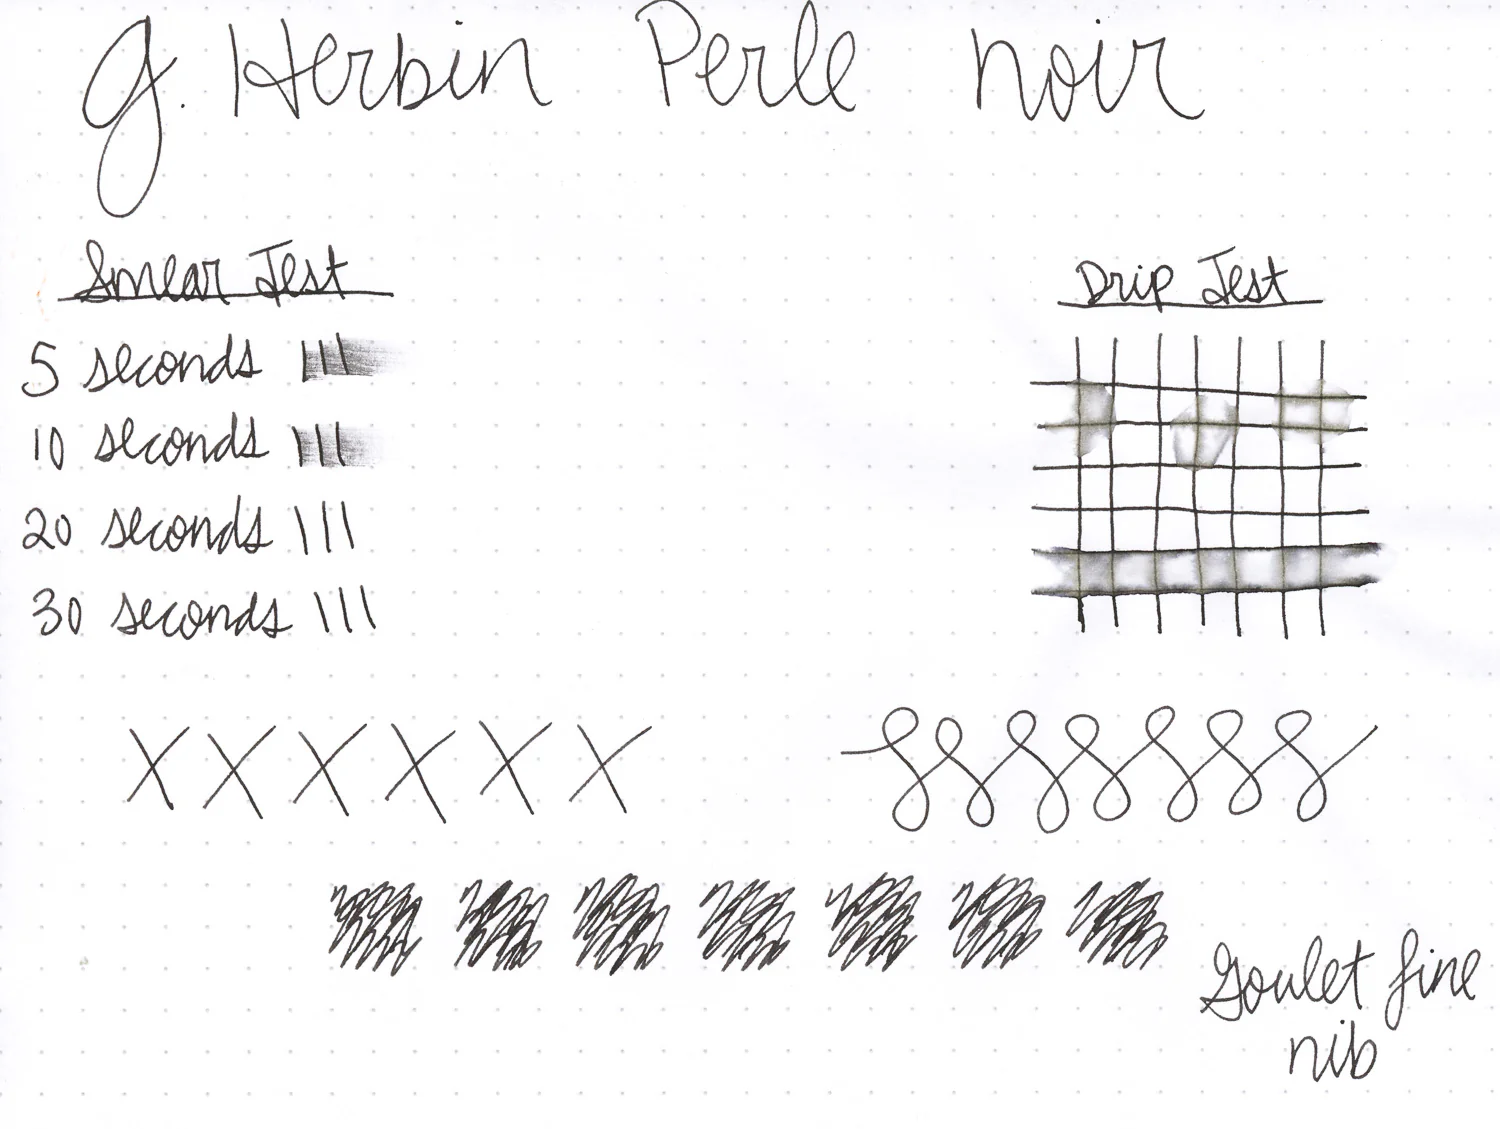 G. Herbin Perle noir
Smear Test
Drip Test
5 seconds
10 seconds
20 seconds
30 seconds
Goulet fine
nib